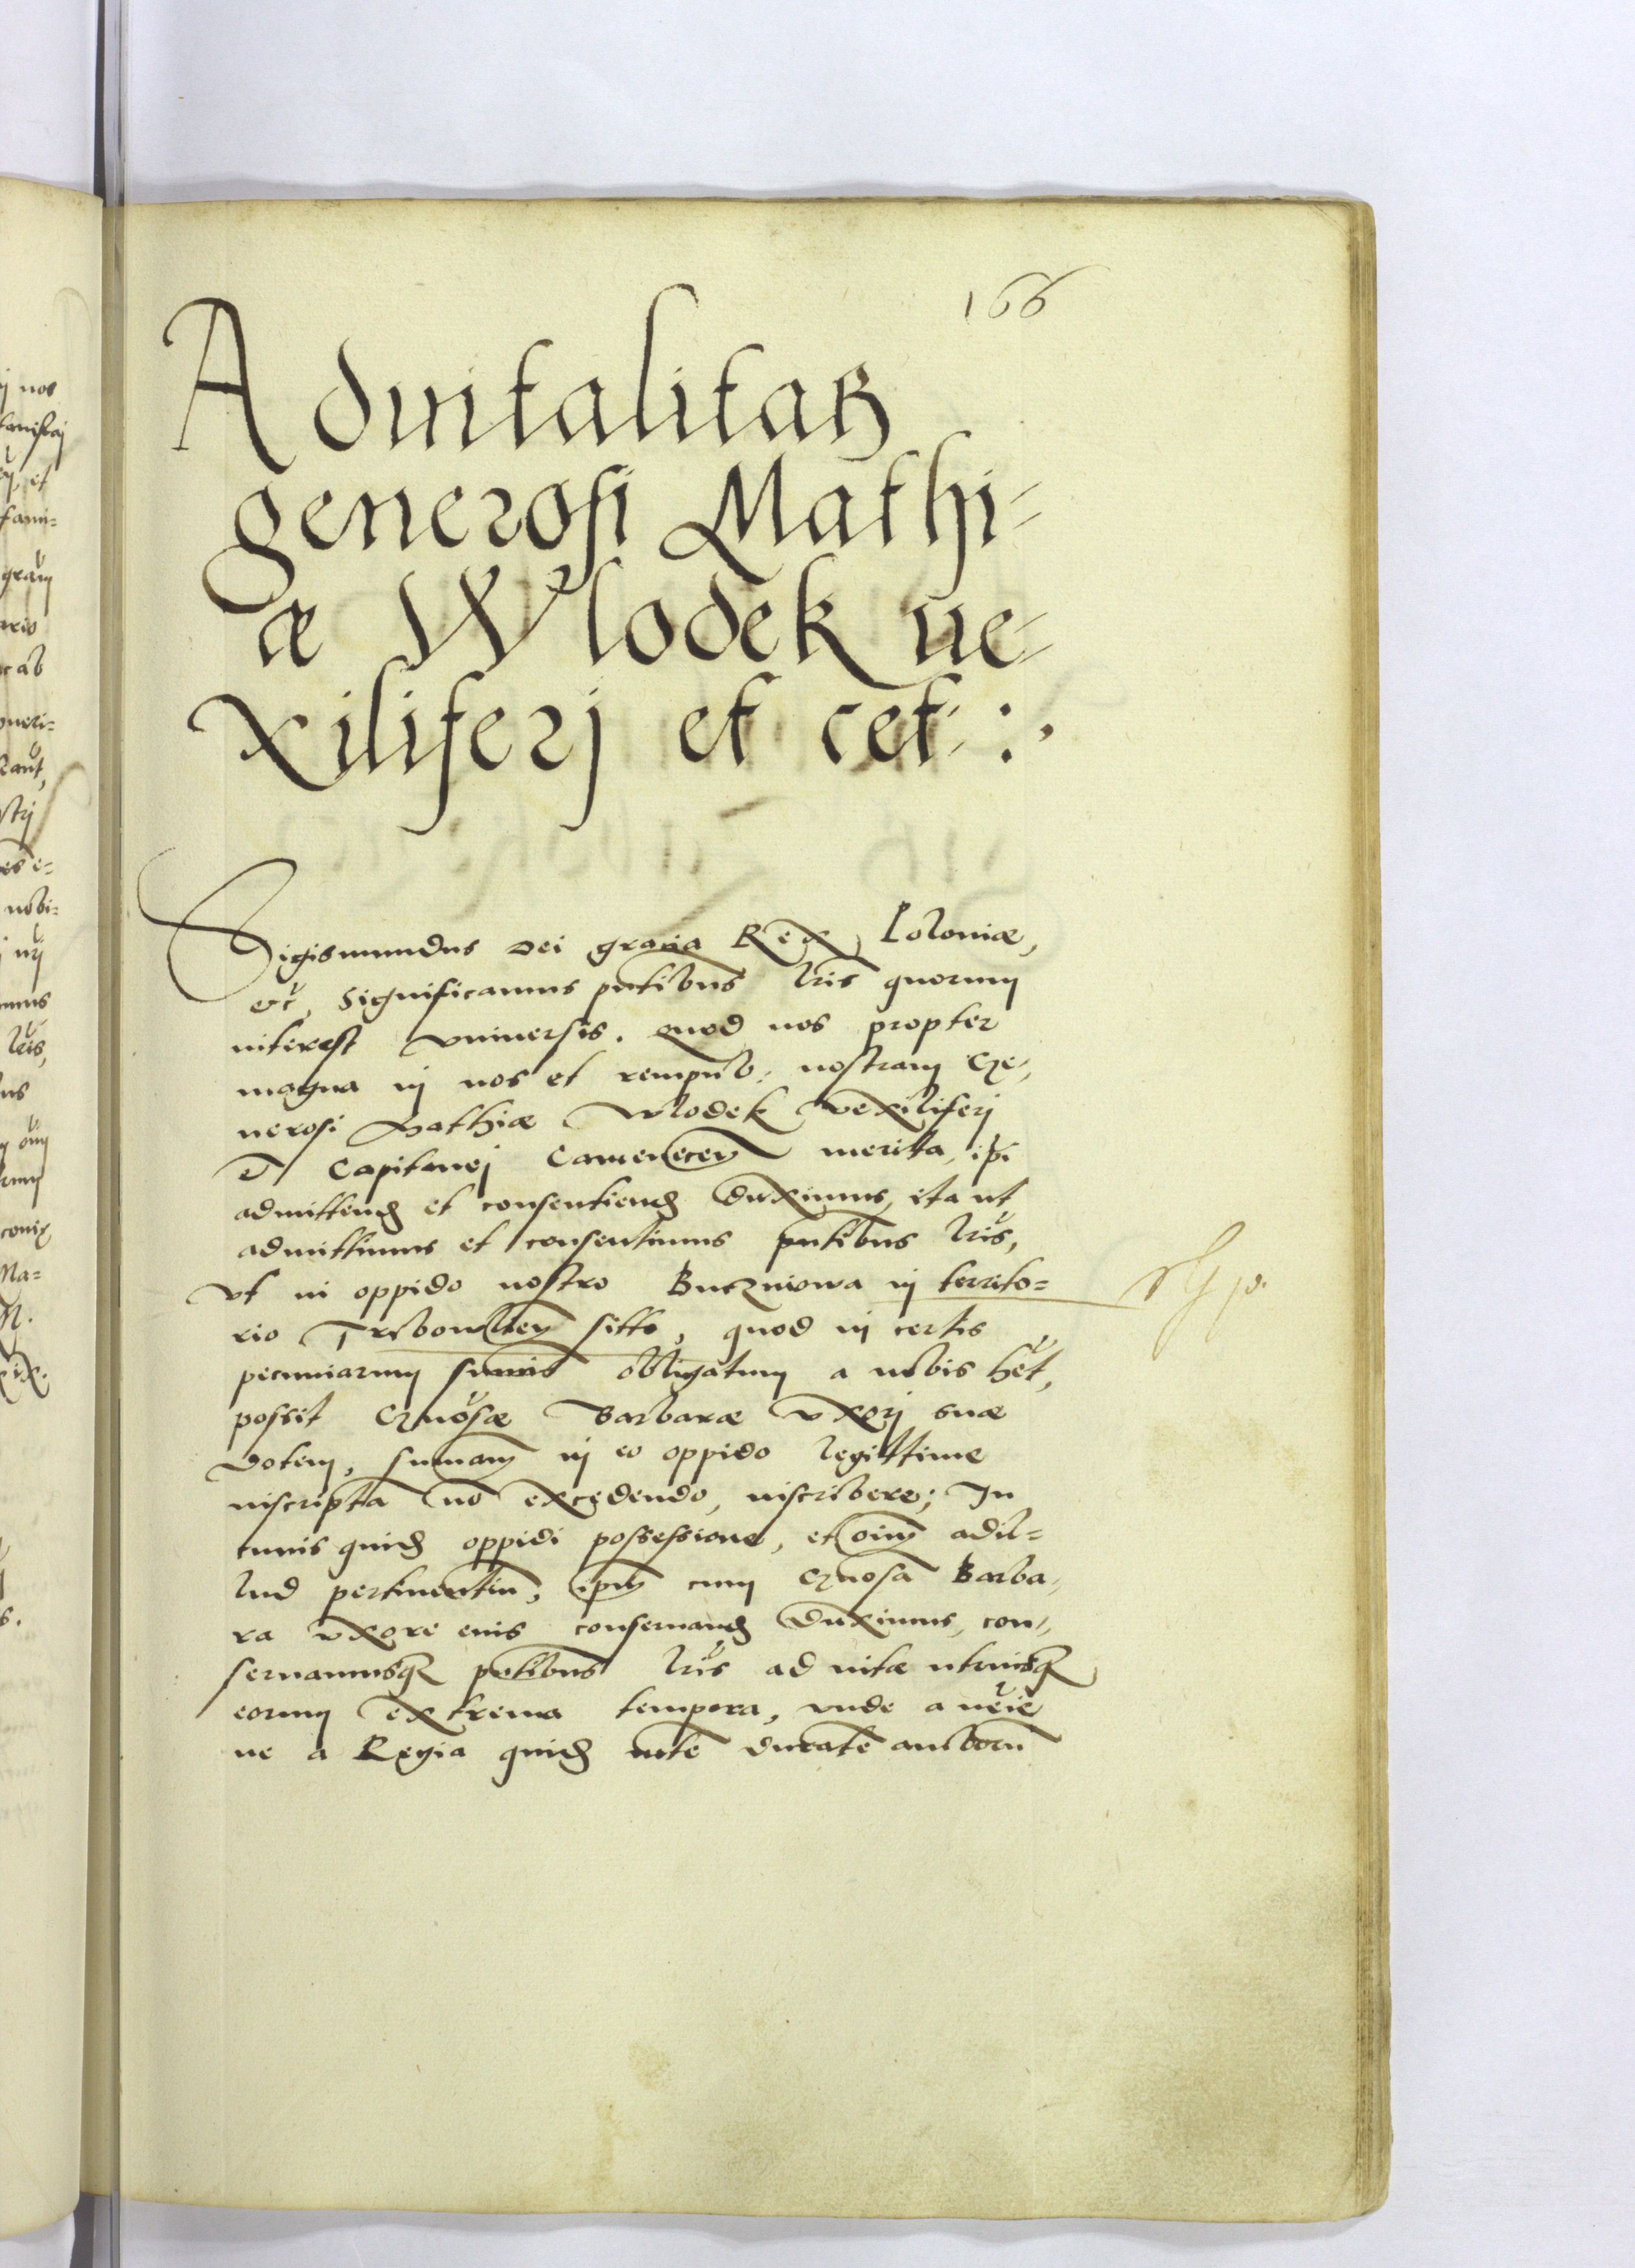 166
Aduitalitas
generosi Mathi-
æ Wlodek ue-
xiliferj et cet:
Sigismundus Dei gratia Rex Poloniæ,
etc̃, Significamus pñtibus lr̃is quorum
interest vniuersis. quod nos propter
magna in nos et rempub: nostram Ge-
nerosi Mathiæ Wlodek Vexiliferj
et Capitanej Camenecen̄ merita, ipsi
admittend et consentiend duximus, ita ut
admittimus et consentimus pñtibus lr̃is,
vt in oppido nostro Buczniowa in territo=
rio Trebowlien̄ sitto, quod in certis
pecuniarum sum̄is obligatum a nobis hẽt,
possit Gñosæ Barbaræ vxorj suæ
dotem, summam in eo oppido legittime
inscripta nō excedendo, inscribere; In
cuius quid oppidi possessione, et oim̄ adil=
lud pertinentiū, ipm̄ cum Gñosa Barba-
ra vxore eius conseruand duximus, con-
seruamusq; pñtibus lr̃is ad uitæ utriusq;
eorum extrema tempora, vnde a nẽie
ne a Regia quid mte durate amborū